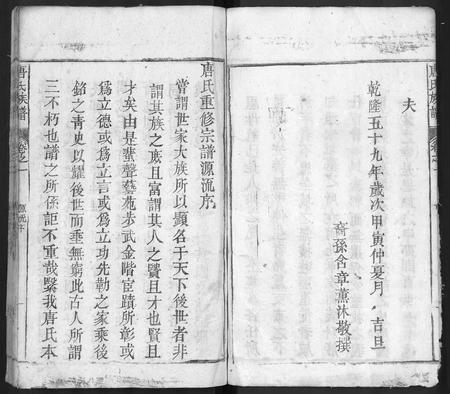 唐氏族譜
卷之一
夫
乾隆五十九年歲次甲寅仲夏月 吉旦
裔孫含章薰沐敬撰
唐氏重修宗譜源流序
嘗謂世家大族所以顯名于天下後世者非
謂其族之庶且富謂其人之賢且才也賢且
才矣由是蜚聲藝苑步武金階宦蹟所彰或
爲立德或爲立言或爲立功先勒之家乘後
銘之青史以耀後世而垂無窮此古人所謂
三不朽也譜之所係詎不重哉繄我唐氏本
唐氏族譜
卷之一
源流序
一